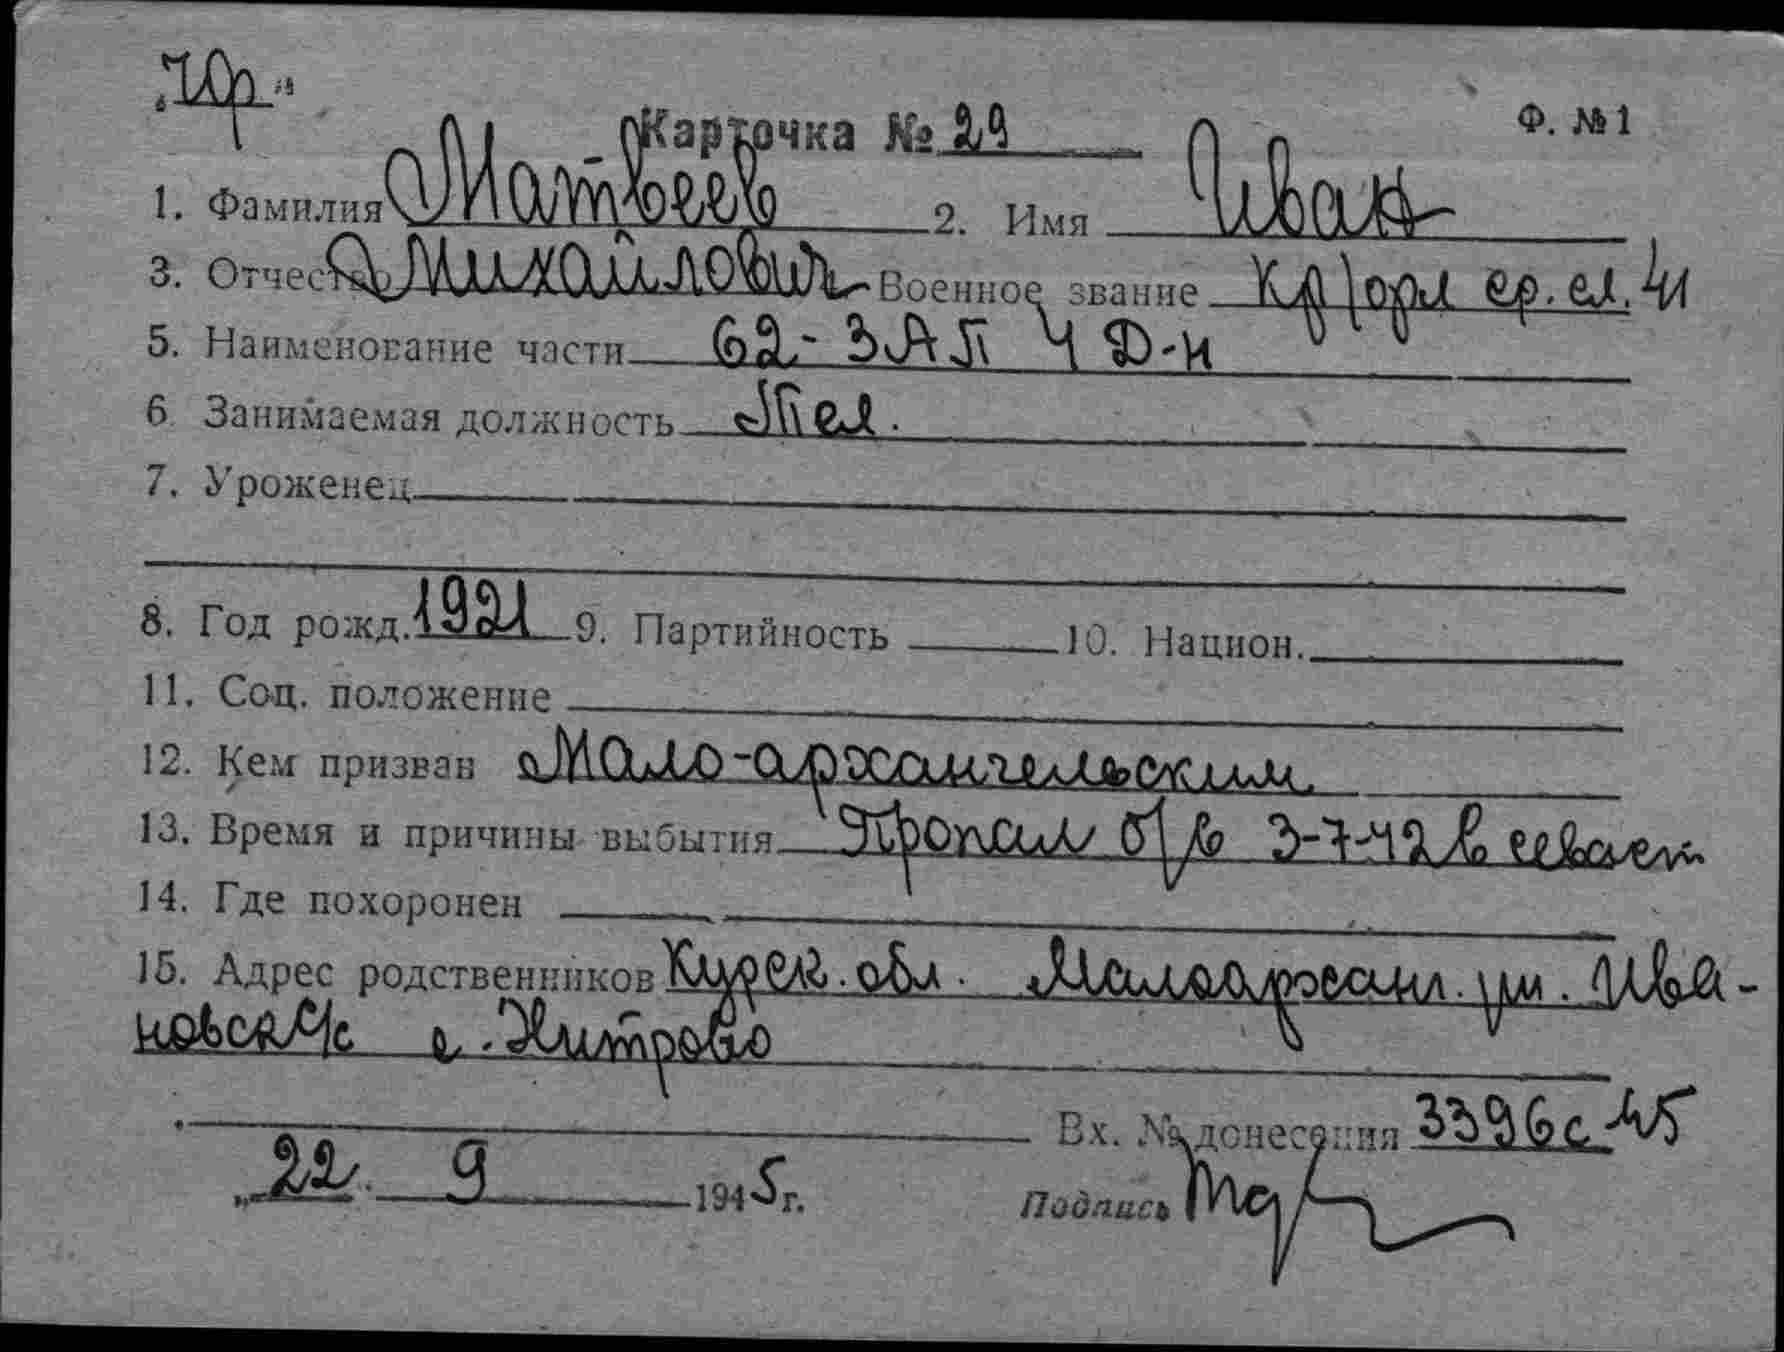 "Юр"
Карточка № 29 Ф. №1
1. Фамилия Матвеев 2. Имя Иван
3. Отчество Михайлович Военное звание кр/фл ср. сл. 41
5. Наименование части 62-ЗАП ЧД-н
6. Занимаемая должность Тел.
7. Уроженец
8. Год рожд. 1921 9. Партийность 10. Национ.
11. Соц. положение
12. Кем призван Мало-архангельским
13. Время и причины выбытия Пропал б/в 3-7-42 в севаст
14. Где похоронен
15. Адрес родственников Курск. обл. Малоарханг. Ива-
новск с/с Хитрово
Вх. № донесения 3396с 45
„22" 9 1945 г. Подпись